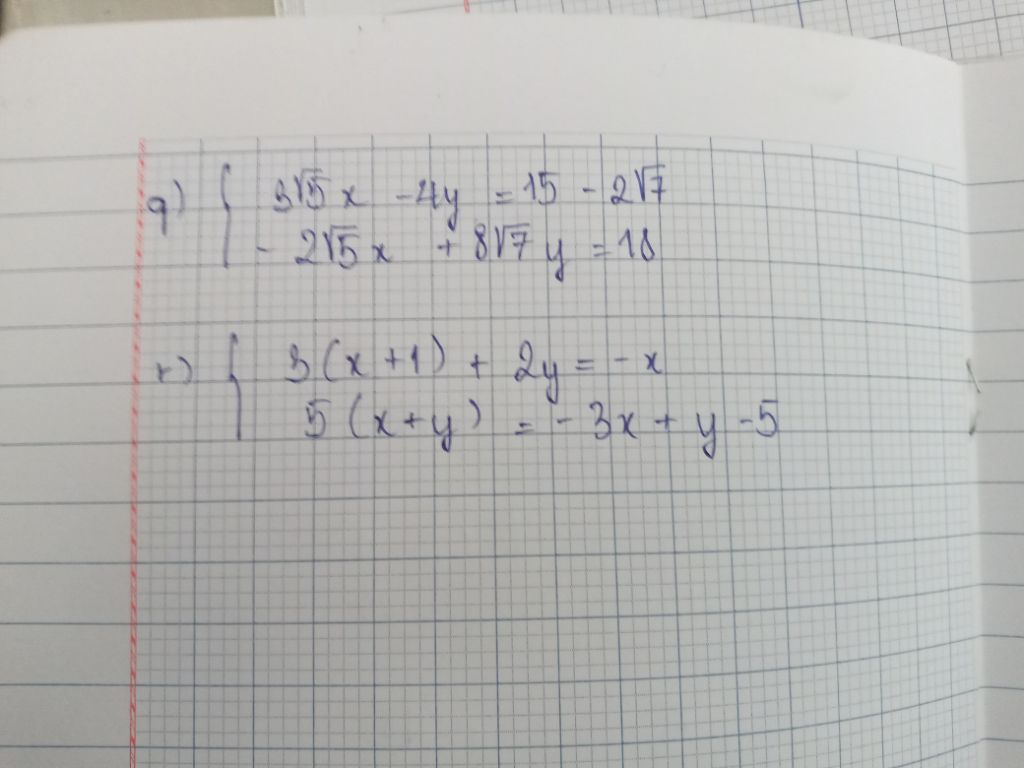 q) { 3√5x - 4y = 15 - 2√7
- 2√5x + 8√7y = 18
r) { 3(x+1) + 2y = -x
5(x+y) = -3x + y - 5